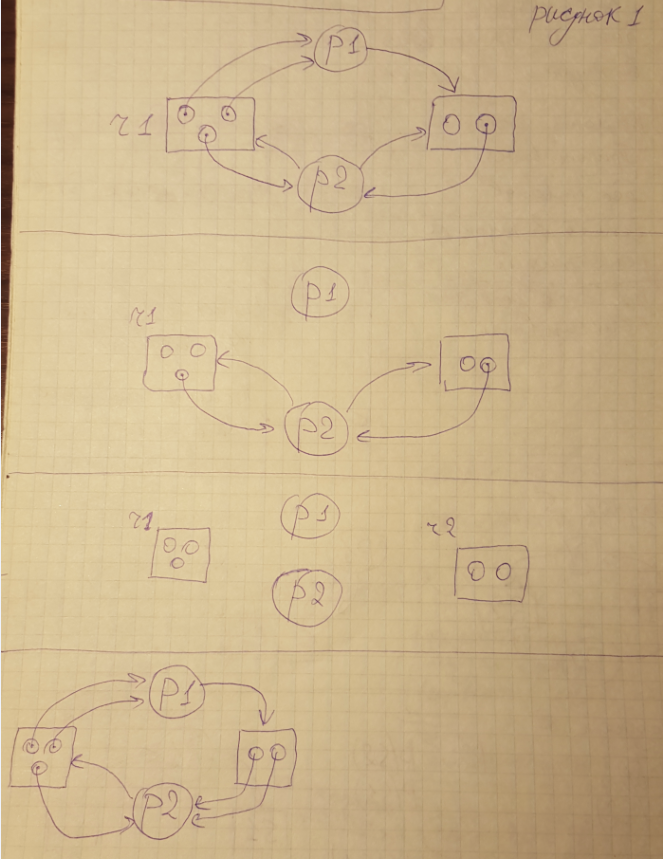 рисунок 1
p1
r1
p2
p1
r1
p2
r1
p1
r2
p2
p1
p2